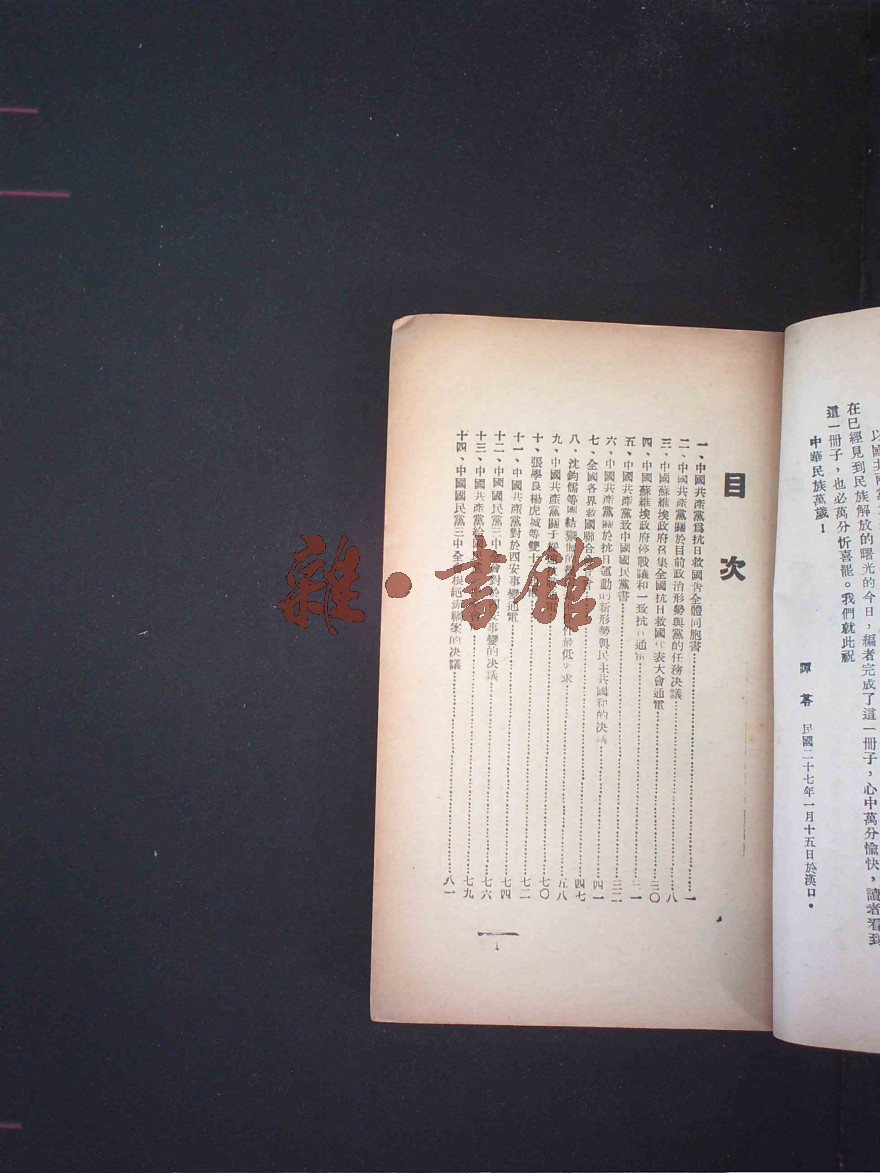 以國共兩黨
在已經見到民族解放的曙光的今日，編者完成了這一冊子，心中萬分愉快，讀者看到
這一冊子，也必萬分忻喜罷。我們就此祝
中華民族萬歲！
民國二十七年一月十五日於漢口。
目次
一、中國共產黨爲抗日救國吿全體同胞書 一
二、中國共產黨關於目前政治形勢與黨的任務决議 八
三、中國蘇維埃政府召集全國抗日救國代表大會通電 三〇
四、中國蘇維埃政府停戰議和一致抗日通電
五、中國共產黨致中國國民黨書 三二
六、中國共產黨關於抗日運動的新形勢與民主共國和的决議 四一
七、全國各界救國聯合 四七
八、沈鈞儒等團結禦侮的 最低要求 五八
九、中國共產黨關于 七〇
十、張學良楊虎城等雙十 七二
十一、中國共產黨對於西安事變通電 七四
十二、中國國民黨三中全會對於西安事變的决議 七六
十三、中國共產黨給國民黨 七九
十四、中國國民黨三中全會根絕赤禍案的决議 八一
雜·書館